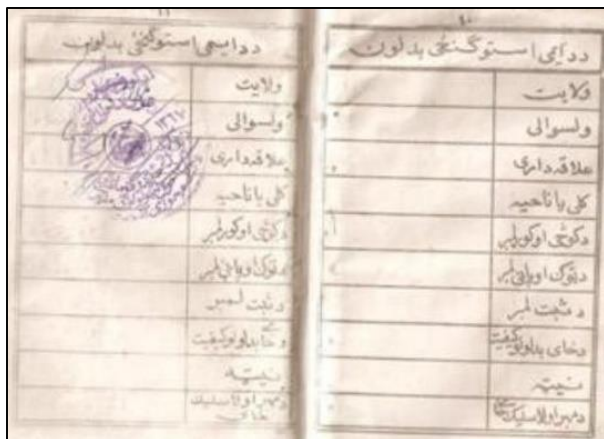 ۱۰
ددایمی استوگنځی بدلون
ولایت
ولسوالی
علاقه داری
کلی یا ناحیه
دکوڅی اوکورلمبر
دټوک اوپاڼی لمبر
د ثبت لمبر
دځای بدلولو کیفیت
نیټه
دمهر اولاسلیک ځای
۱۱
ددایمی استوگنځی بدلون
ولایت
ولسوالی
علاقه داری
کلی یا ناحیه
دکوڅی اوکورلمبر
دټوک اوپاڼی لمبر
د ثبت لمبر
دځای بدلولو کیفیت
نیټه
دمهر اولاسلیک
ځای